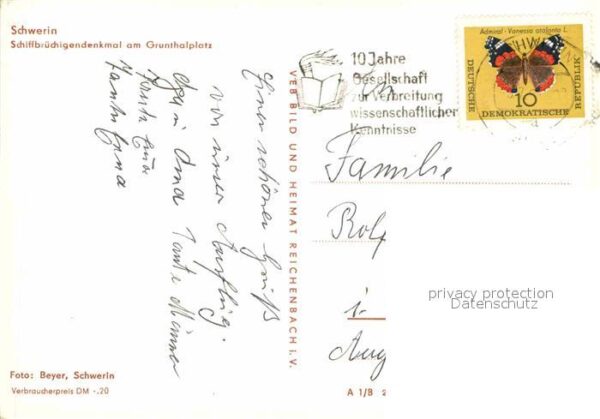 Schwerin
Schiffbrüchigendenkmal am Grunthalplatz
Einen schönen Gruß
von unser Ausflug.
Oma Tante Männer
Tante
Tante Lena
VEB BILD UND HEIMAT REICHENBACH i. V.
10 Jahre
Gesellschaft
zur Verbreitung
wissenschaftlicher
Kenntnisse
Admiral - Vanessa atalanta L.
DEUTSCHE
10
DEMOKRATISCHE
REPUBLIK
An
Familie
Rol
Aug
privacy protection
Datenschutz
Foto: Beyer, Schwerin
Verbraucherpreis DM -.20
A 1/B 2